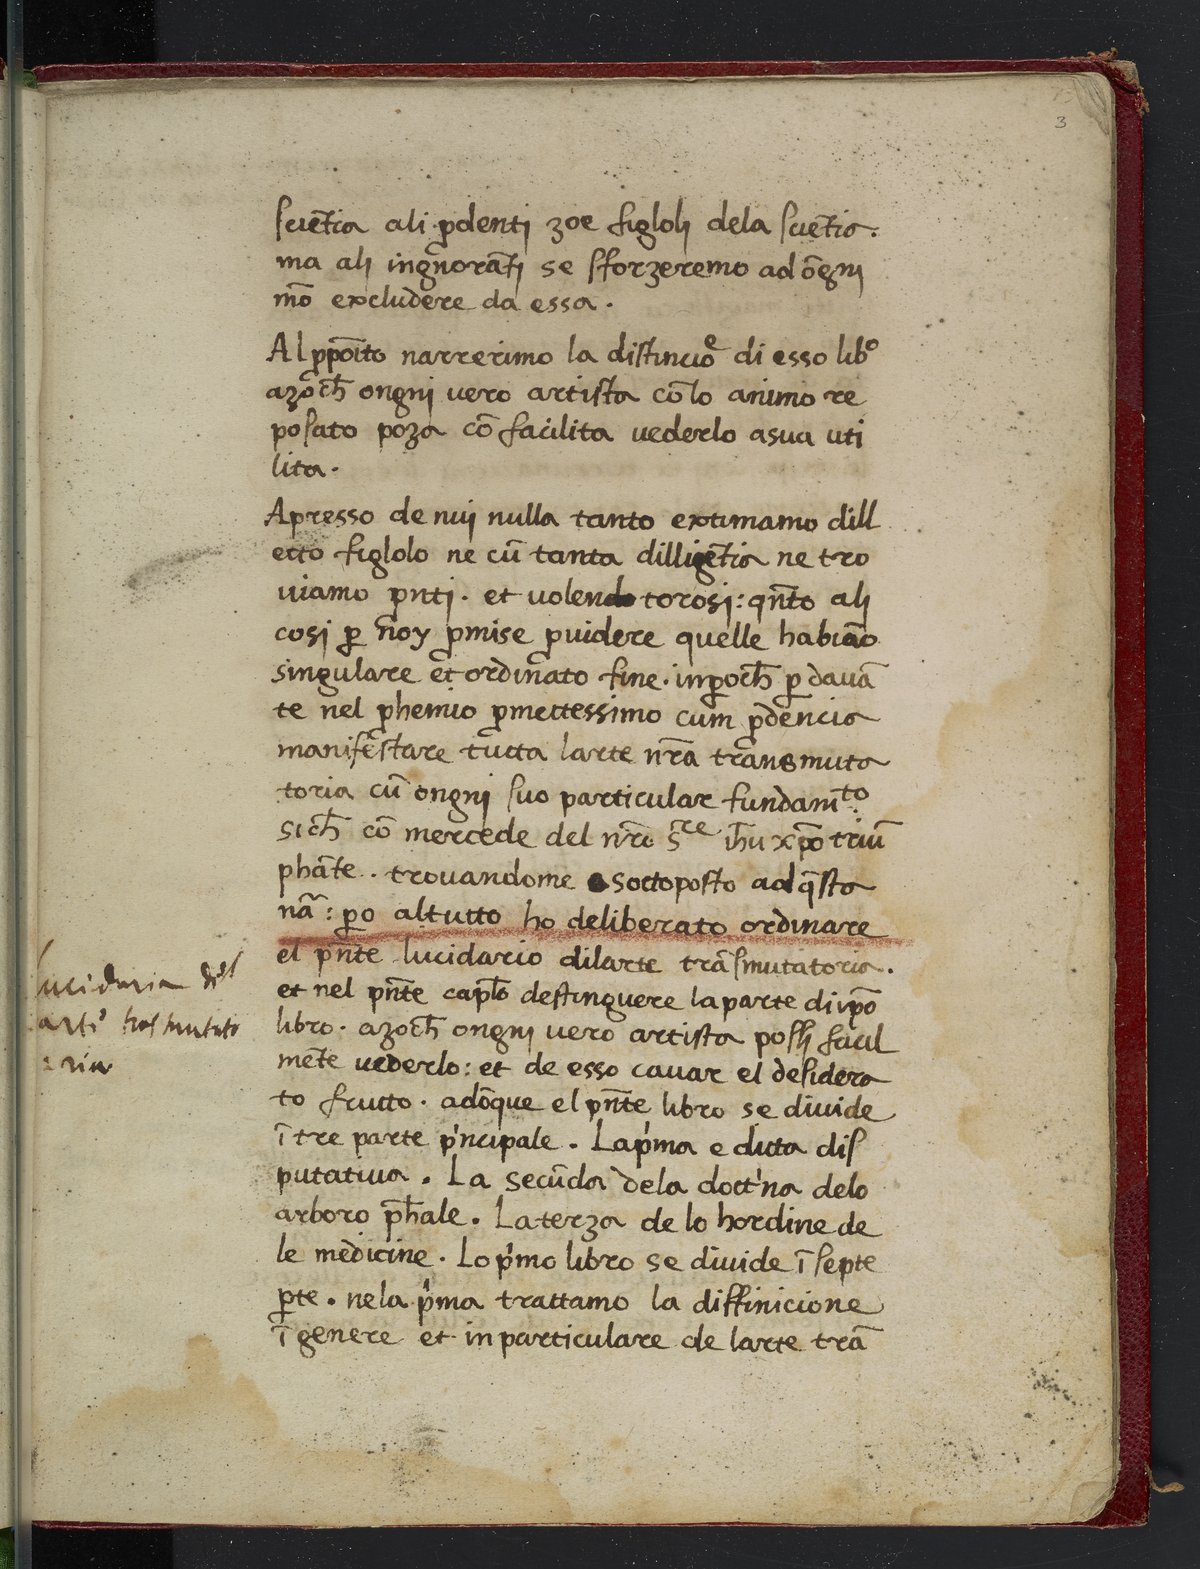 3
sciētia ali p̄denti zoe figloli dela sciētia.
ma ali ingnorāti se sforzeremo ad ōgni
mō excludere da essa.
Al ꝓpoīto narrerimo la distinciōe di esso libº
azoch̄ ongni vero artista cōlo animo re
posato poza cō facilita vederlo asua uti
lita.
Apresso de nuj nulla tanto extimamo dill
etto figlolo ne cū tanta dilligētia ne tro
viamo p̄nti. et volendo torosi: qn̄to ali
cosi ꝑ noy p̄mise ꝓuidere quelle habiāo
singulare et ordinato fine. inꝑoch̄ ꝑ davā
te nel p̄hemio p̄mettessimo cum p̄dencia
manifestare tutta larte nr̄a transmuta
toria cū ongni suo particular fundamto.
sich̄ cō mercede del nr̄o s̄re ih̄u xp̄o triū
phāte.. trovandome sottoposto ad q̄sta
nā: ꝑo altutto ho deliberato ordinare
el pn̄te lucidario dilarte trāsmutatoria.
et nel pn̄te capl̄o destinguere la parte di ip̄o
libro. azoch̄ ongni vero artista possi facil
mēte vederlo: et de esso cavar el desidera
to frutto. adōque el pn̄te libro se divide
ī tre parte p'ncipale. La p'ma e ditta dis
putativa. La secūda dela dott'na delo
arboro ph̄ale. La terza de lo hordine de
le medicine. Lo p'mo libro se divide ī septe
ꝑte. nela p'ma trattamo la diffinicione
ī genere et in particulare de larte trā
lucidaria del
arti trasmutato
ria